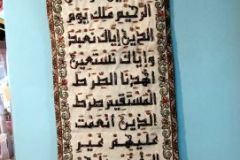 الرحيم ملك يوم
الدين اياك نعبد
واياك نستعين
اهدنا الصرط
المستقيم صرط
الذين انعمت
عليهم غير